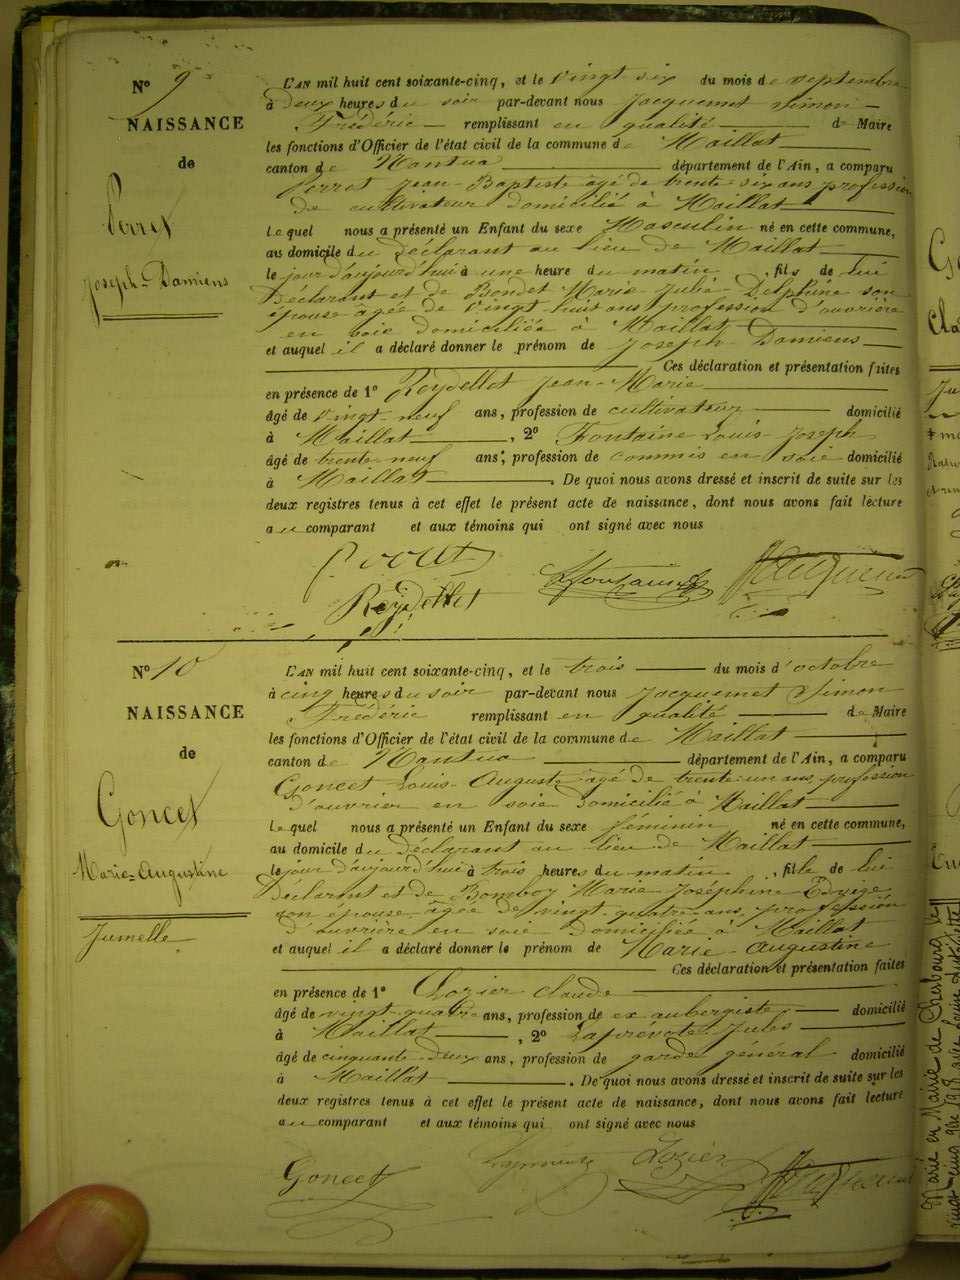 N° 9
NAISSANCE
de
Perret
Joseph-Damiens
L'AN mil huit cent soixante-cinq, et le vingt six du mois de septembre
à deux heures du soir par-devant nous Jacquemet Simon
Frédéric remplissant en qualité de Maire
les fonctions d'Officier de l'état civil de la commune de Maillat
canton de Nantua département de l'Ain, a comparu
Perret Jean-Baptiste âgé de trente six ans profession
de cultivateur domicilié à Maillat
Lequel nous a présenté un Enfant du sexe Masculin né en cette commune,
au domicile du déclarant au lieu de Maillat
le jour d'aujourd'hui à une heure du matin, fils de lui
déclarant et de Bondet Marie Julie Delphine son
épouse agée de vingt huit ans profession d'ouvrière
en soie domiciliée à Maillat
et auquel il a déclaré donner le prénom de Joseph-Damiens
Ces déclaration et présentation faites
en présence de 1° Reydellet Jean-Marie
âgé de vingt-neuf ans, profession de cultivateur domicilié
à Maillat, 2° Fontaine Louis-Joseph
âgé de trente neuf ans, profession de commis en soie domicilié
à Maillat. De quoi nous avons dressé et inscrit de suite sur les
deux registres tenus à cet effet le présent acte de naissance, dont nous avons fait lecture
au comparant et aux témoins qui ont signé avec nous
Perret
Reydellet
Lfontaine
Jacquemet
N° 10
NAISSANCE
de
Goncet
Marie-Augustine
Jumelle
L'AN mil huit cent soixante-cinq, et le trois du mois d'octobre
à cinq heures du soir par-devant nous Jacquemet Simon
Frédéric remplissant en qualité de Maire
les fonctions d'Officier de l'état civil de la commune de Maillat
canton de Nantua département de l'Ain, a comparu
Goncet Louis-Auguste âgé de trente-un ans, profession
d'ouvrier en soie domicilié à Maillat
Lequel nous a présenté un Enfant du sexe féminin né en cette commune,
au domicile du déclarant au lieu de Maillat
le jour d'aujourd'hui à trois heures du matin, fille de lui
déclarant et de Marie Joséphine Edvige
son épouse âgée de vingt-quatre ans, profession
d'ouvrière en soie domiciliée à Maillat
et auquel il a déclaré donner le prénom de Marie-Augustine
Ces déclaration et présentation faites
en présence de 1° Lozier Claude
âgé de vingt-quatre ans, profession de ex aubergiste domicilié
à Maillat, 2° Laprévote Jules
âgé de cinquante-deux ans, profession de garde général domicilié
à Maillat. De quoi nous avons dressé et inscrit de suite sur les
deux registres tenus à cet effet le présent acte de naissance, dont nous avons fait lecture
au comparant et aux témoins qui ont signé avec nous
Goncet
Lozier
Jacquemet
Marié en Mairie de Cherbourg le